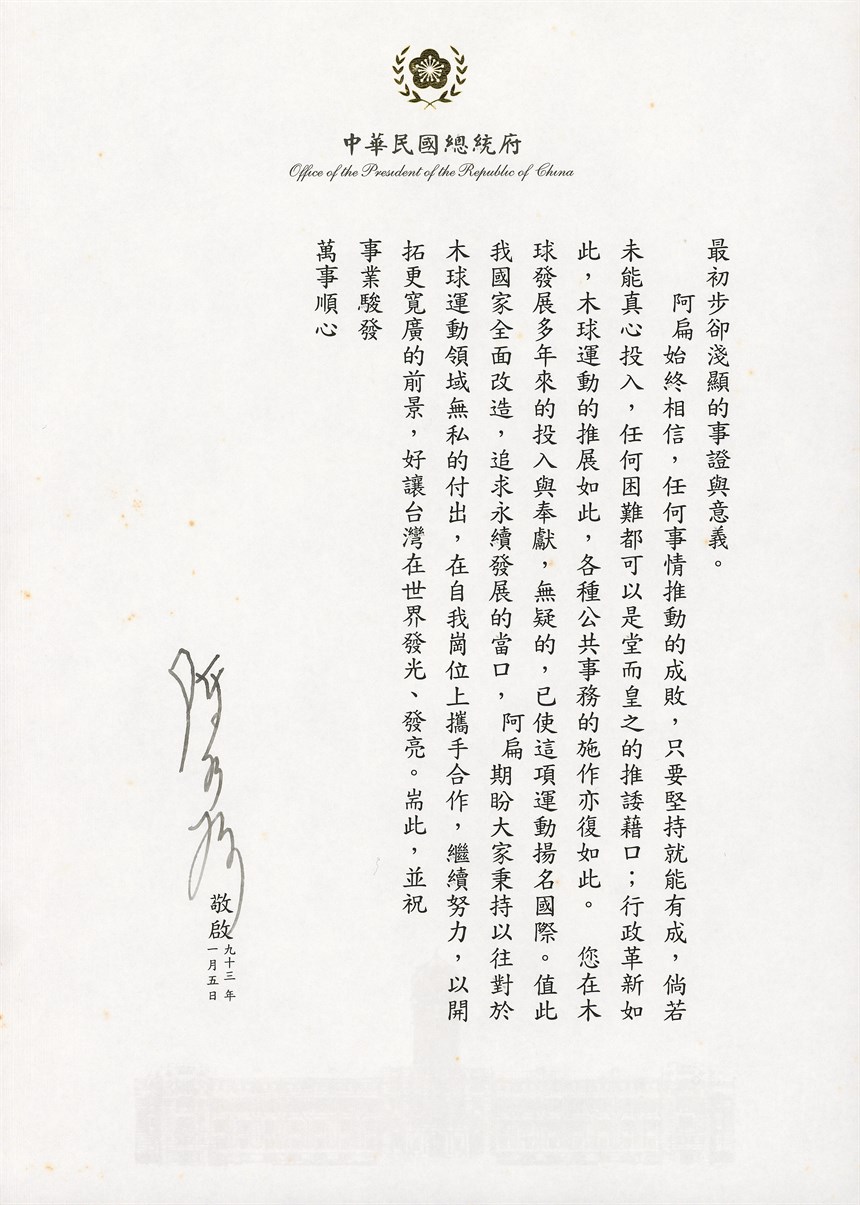 中華民國總統府
Office of the President of the Republic of China
最初步卻淺顯的事證與意義。
阿扁始終相信，任何事情推動的成敗，只要堅持就能有成，倘若
未能真心投入，任何困難都可以是堂而皇之的推諉藉口；行政革新如
此，木球運動的推展如此，各種公共事務的施作亦復如此。　您在木
球發展多年來的投入與奉獻，無疑的，已使這項運動揚名國際。值此
我國家全面改造，追求永續發展的當口，阿扁期盼大家秉持以往對於
木球運動領域無私的付出，在自我崗位上攜手合作，繼續努力，以開
拓更寬廣的前景，好讓台灣在世界發光、發亮。耑此，並祝
事業駿發
萬事順心
陳水扁
敬啟
九十三年
一月五日